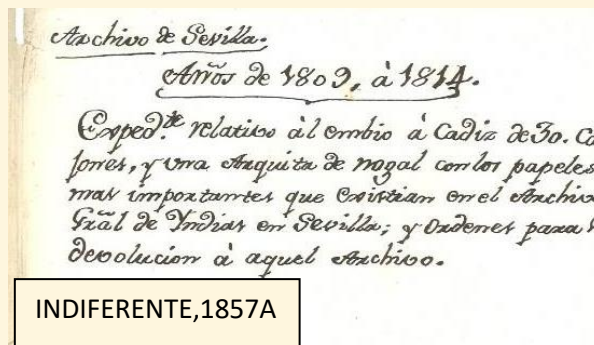 Archivo de Sevilla.
Años de 1809, à 1814.
Exped.te relativo àl embio à Cadiz de 30. Ca
jones, y una Arquita de nogal con los papeles
mas importantes que existian en el Archivo
Gral de Yndias en Sevilla; y Ordenes para
devolucion à aquel Archivo.
INDIFERENTE,1857A